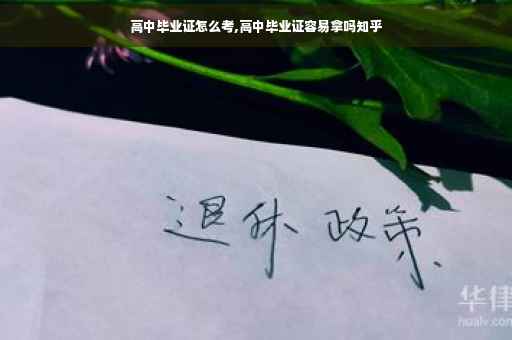 高中毕业证怎么考,高中毕业证容易拿吗知乎
退休 政策
华律
hualv.com